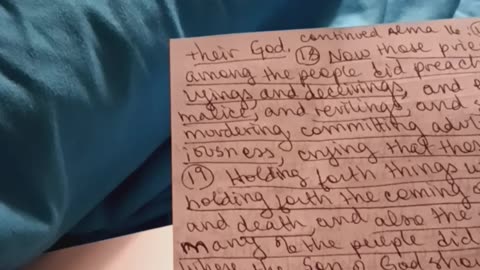 their God. continued Alma 16:
(18) Now those prie
among the people did preach
lyings, and deceivings, and e
malice, and revilings, and s
murdering, committing adul
iousness, crying that thes
(19) Holding forth things w
holding forth the coming o
and death, and also the
many of the people did
where the Son of God shou